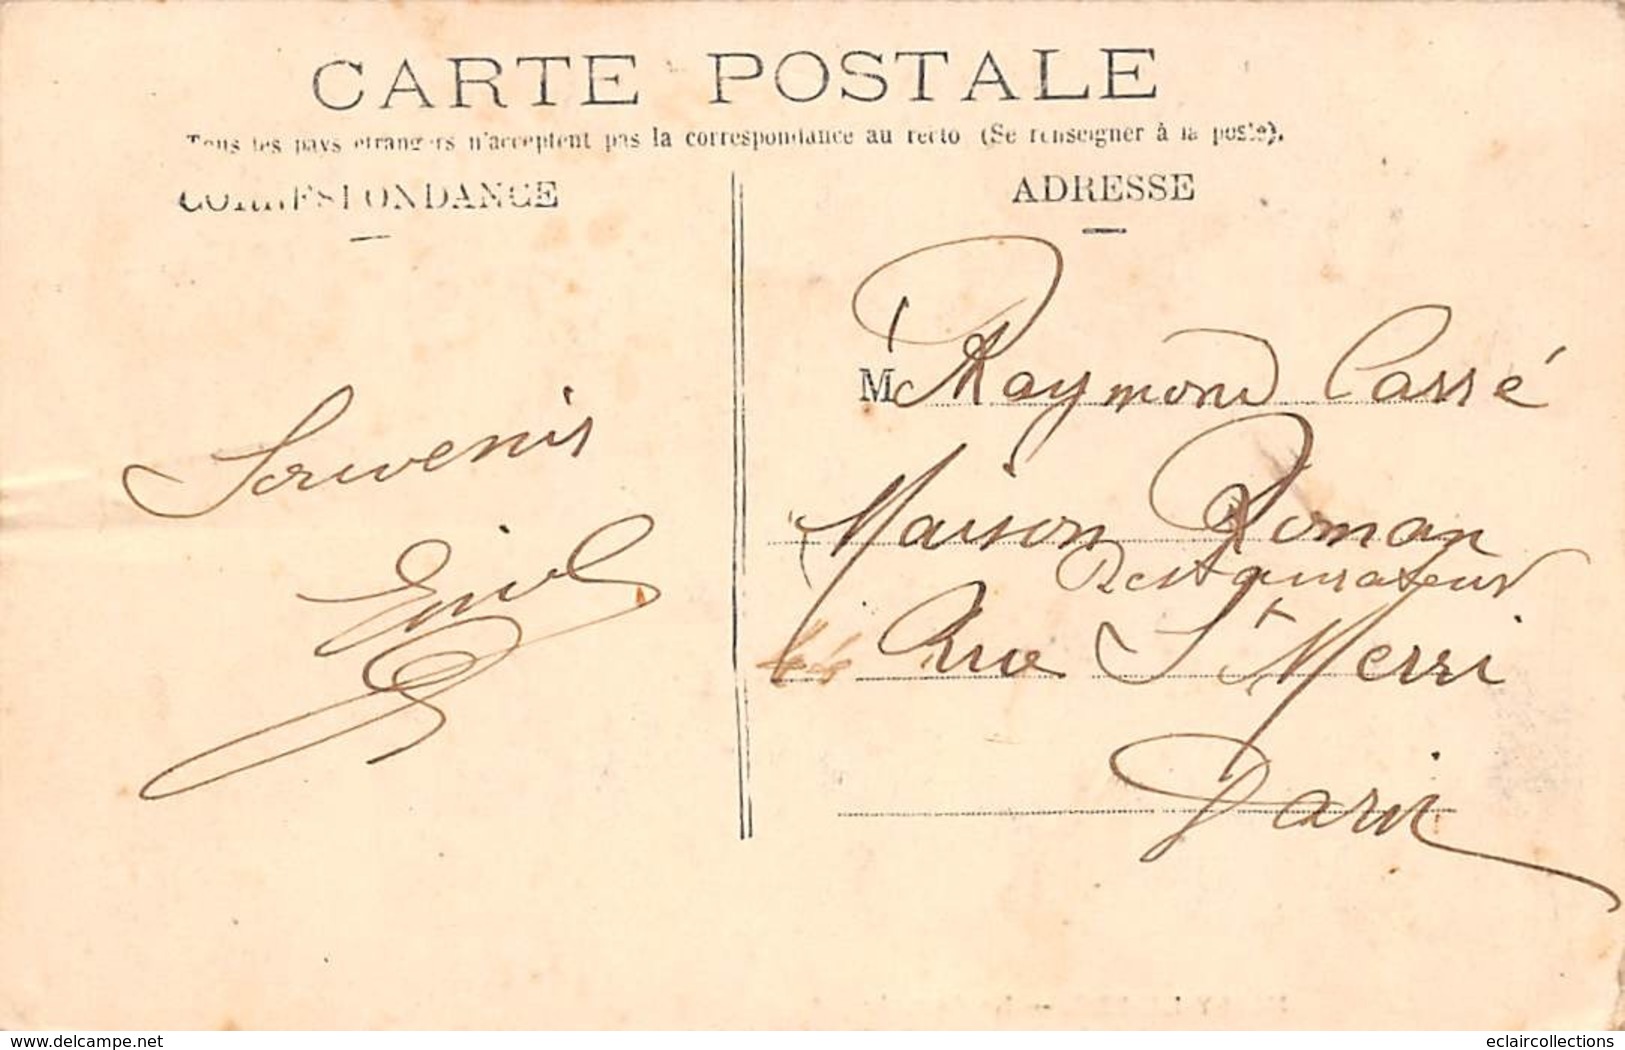 CARTE POSTALE
Tous les pays étrangers n'acceptent pas la correspondance au recto (Se renseigner à la poste).
CORRESPONDANCE
ADRESSE
Souvenir
Emil
M Raymond Cassé
Maison Roman
Restaurateur
44 Rue St Merri
Paris
www.delcampe.net
eclaircollections